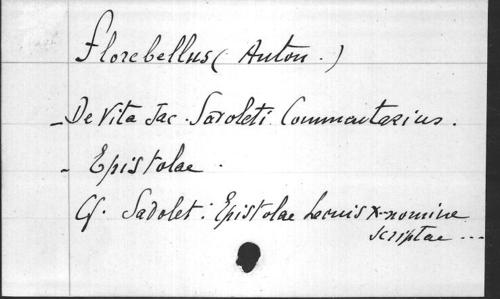 Florebellus ( Anton . )
- De Vita Jac. Sadoleti Commentarius .
- Epistolae .
Cf. Sadolet : Epistolae Leonis X nomine
scriptae ...